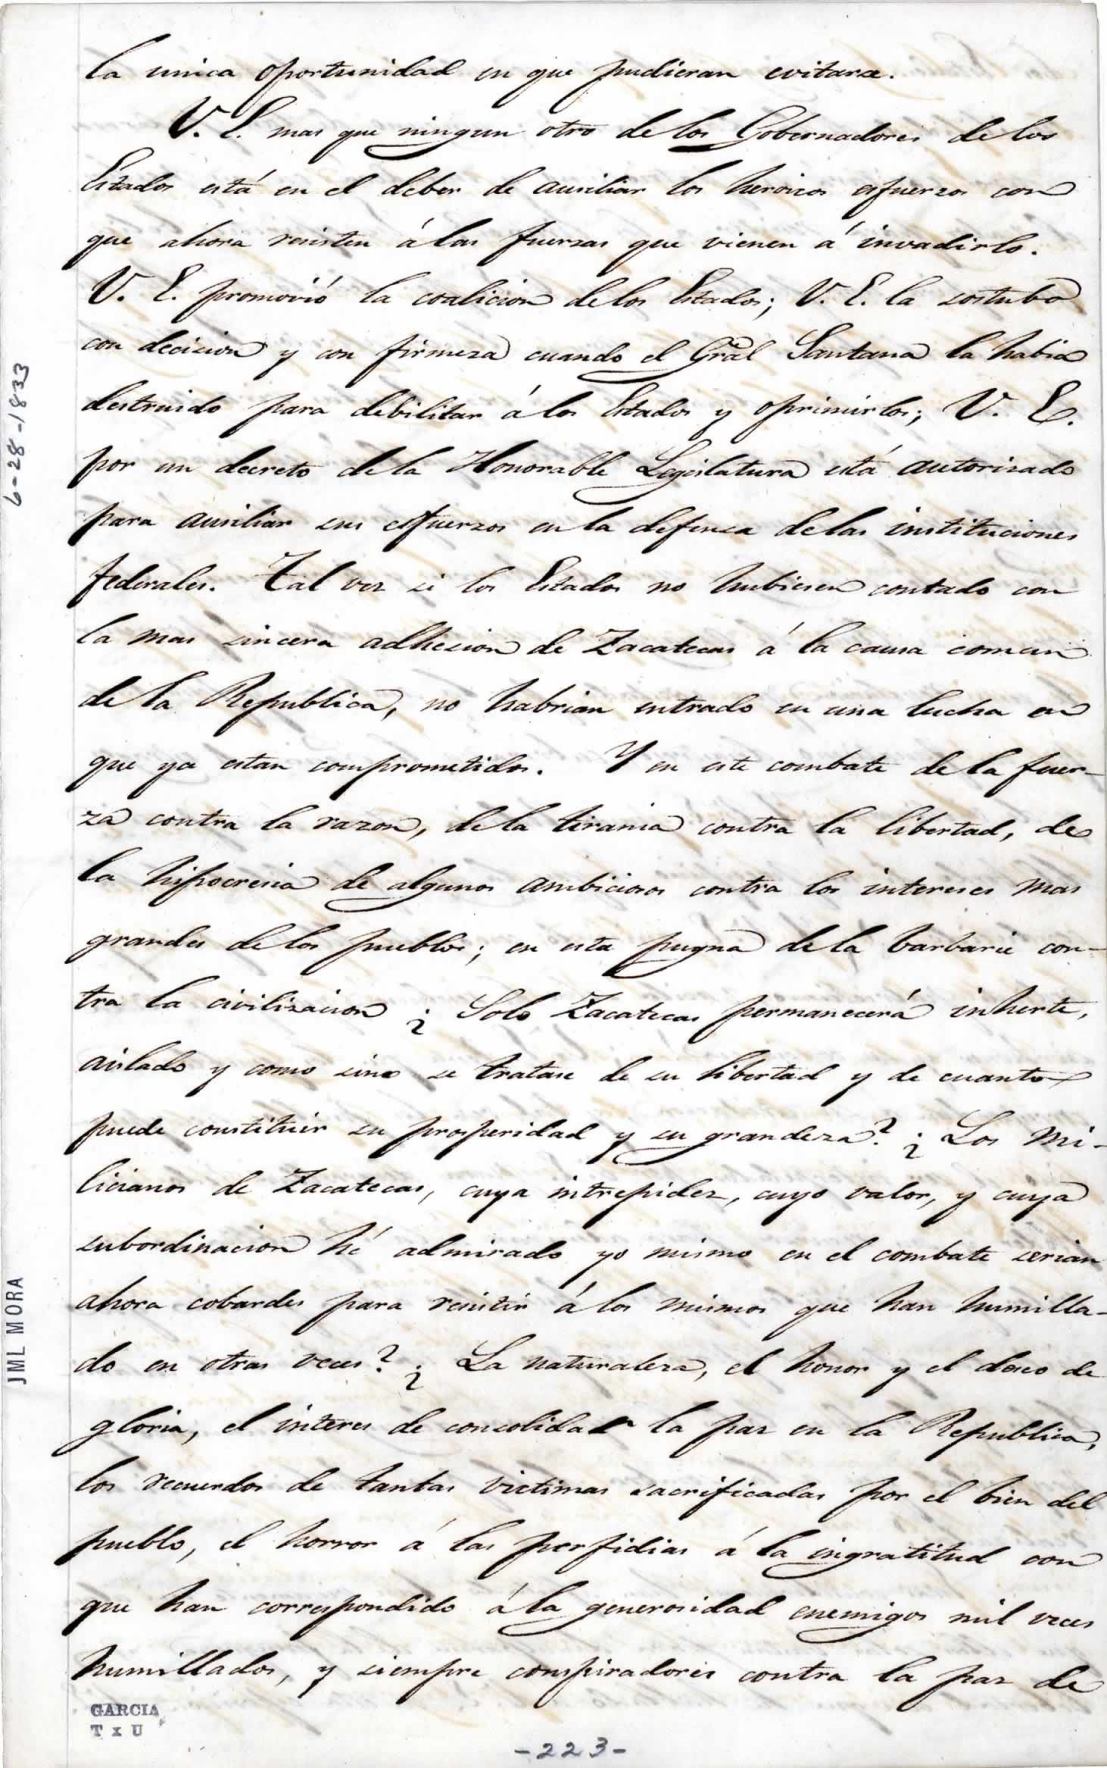 la unica oportunidad en que pudieran evitarse.
V. E. mas que ningun otro de los Gobernadores de los
Estados está en el deber de ausiliar los heroicos esfuerzos con
que ahora resisten á las fuerzas que vienen á invadirlo.
V. E. promovió la coalicion de los Estados; V. E. la sostubo
con decision y con firmeza cuando el Gral Santana la habia
destruido para debilitar á los Estados y oprimirlos; V. E.
por un decreto de la Honorable Legislatura está autorizado
para ausiliar sus esfuerzos en la defensa de las instituciones
federales. Tal vez si los Estados no hubiesen contado con
la mas sincera adhesion de Zacatecas á la causa comun
de la Republica, no habrian entrado en una lucha en
que ya estan comprometidos. Y en este combate de la fuer-
za contra la razon, de la tirania contra la libertad, de
la hipocresia de algunos ambiciosos contra los intereses mas
grandes de los pueblos; en esta pugna de la barbarie con-
tra la civilizacion ¿ Solo Zacatecas permanecerá inherte,
aislado y como sino se tratase de su libertad y de cuanto
puede constituir su prosperidad y su grandeza? ¿ Los Mi-
licianos de Zacatecas, cuya intrepidez, cuyo valor, y cuya
subordinacion hé admirado yo mismo en el combate serian
ahora cobardes para resistir á los mismos que han humilla-
do en otras veces? ¿ La naturaleza, el honor y el deseo de
gloria, el interes de consolidar la paz en la Republica,
los recuerdos de tantas victimas sacrificadas por el bien del
pueblo, el horror á las perfidias á la ingratitud con
que han correspondido á la generosidad enemigos mil veces
humillados, y siempre conspiradores contra la paz de
6-28-1833
JML MORA
GARCIA
T x U
-223-